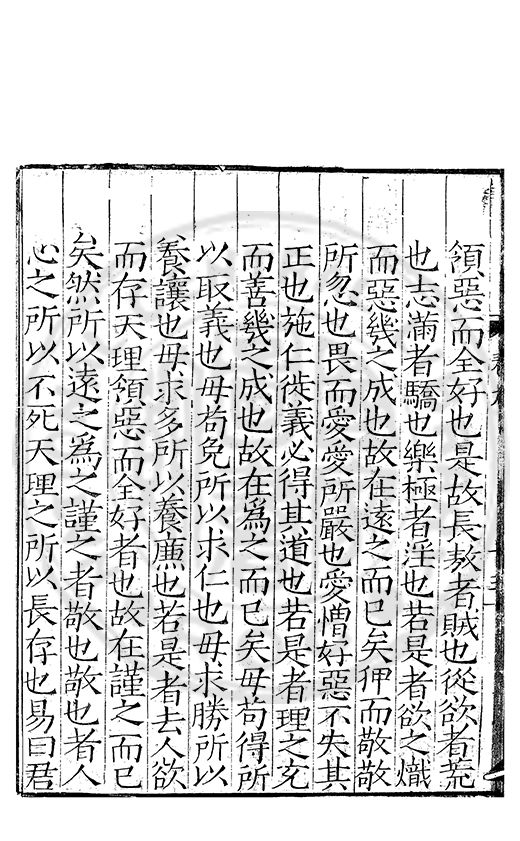 領惡而全好也是故長敖者賊也從欲者荒
也志滿者驕也樂極者淫也若是者欲之熾
而惡幾之成也故在遠之而已矣狎而敬敬
所忽也畏而愛愛所嚴也愛憎好惡不失其
正也施仁徙義必得其道也若是者理之充
而善幾之成也故在爲之而已矣毋苟得所
以取義也毋苟免所以求仁也毋求勝所以
養讓也毋求多所以養廉也若是者去人欲
而存天理領惡而全好者也故在謹之而已
矣然所以遠之爲之謹之者敬也敬也者人
心之所以不死天理之所以長存也易曰君